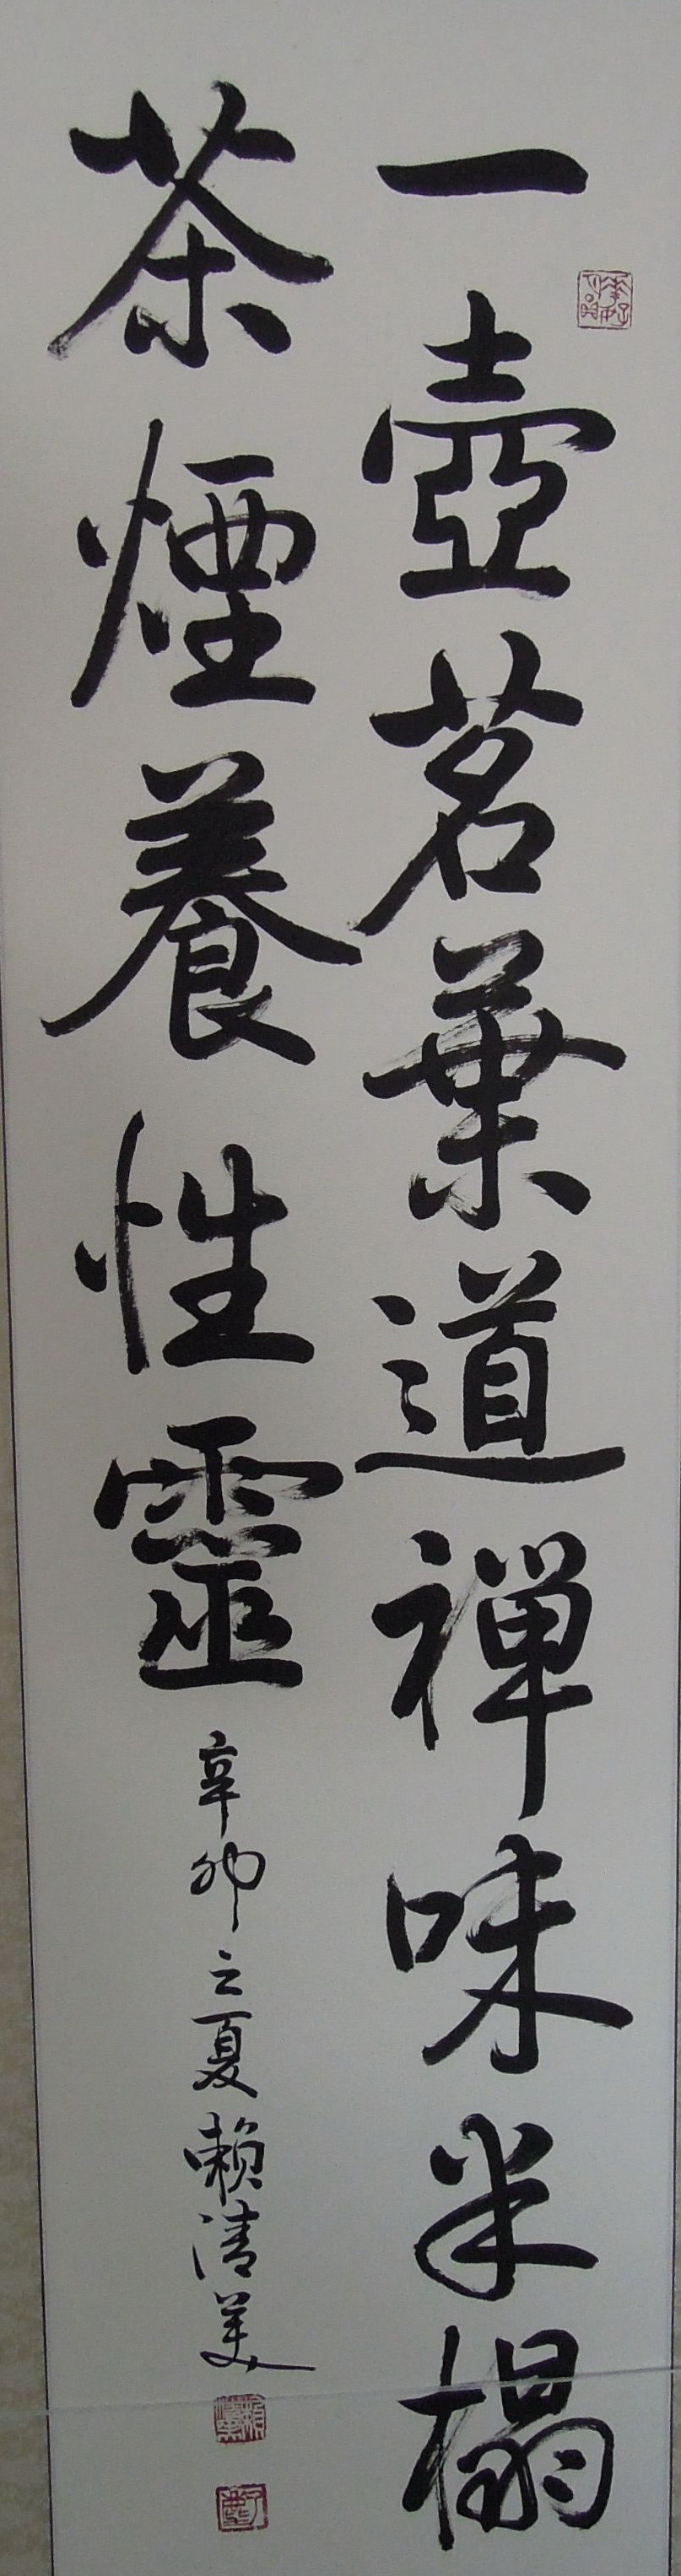 一壺茗葉道禪味半榻
茶煙養性靈
辛卯之夏賴清美